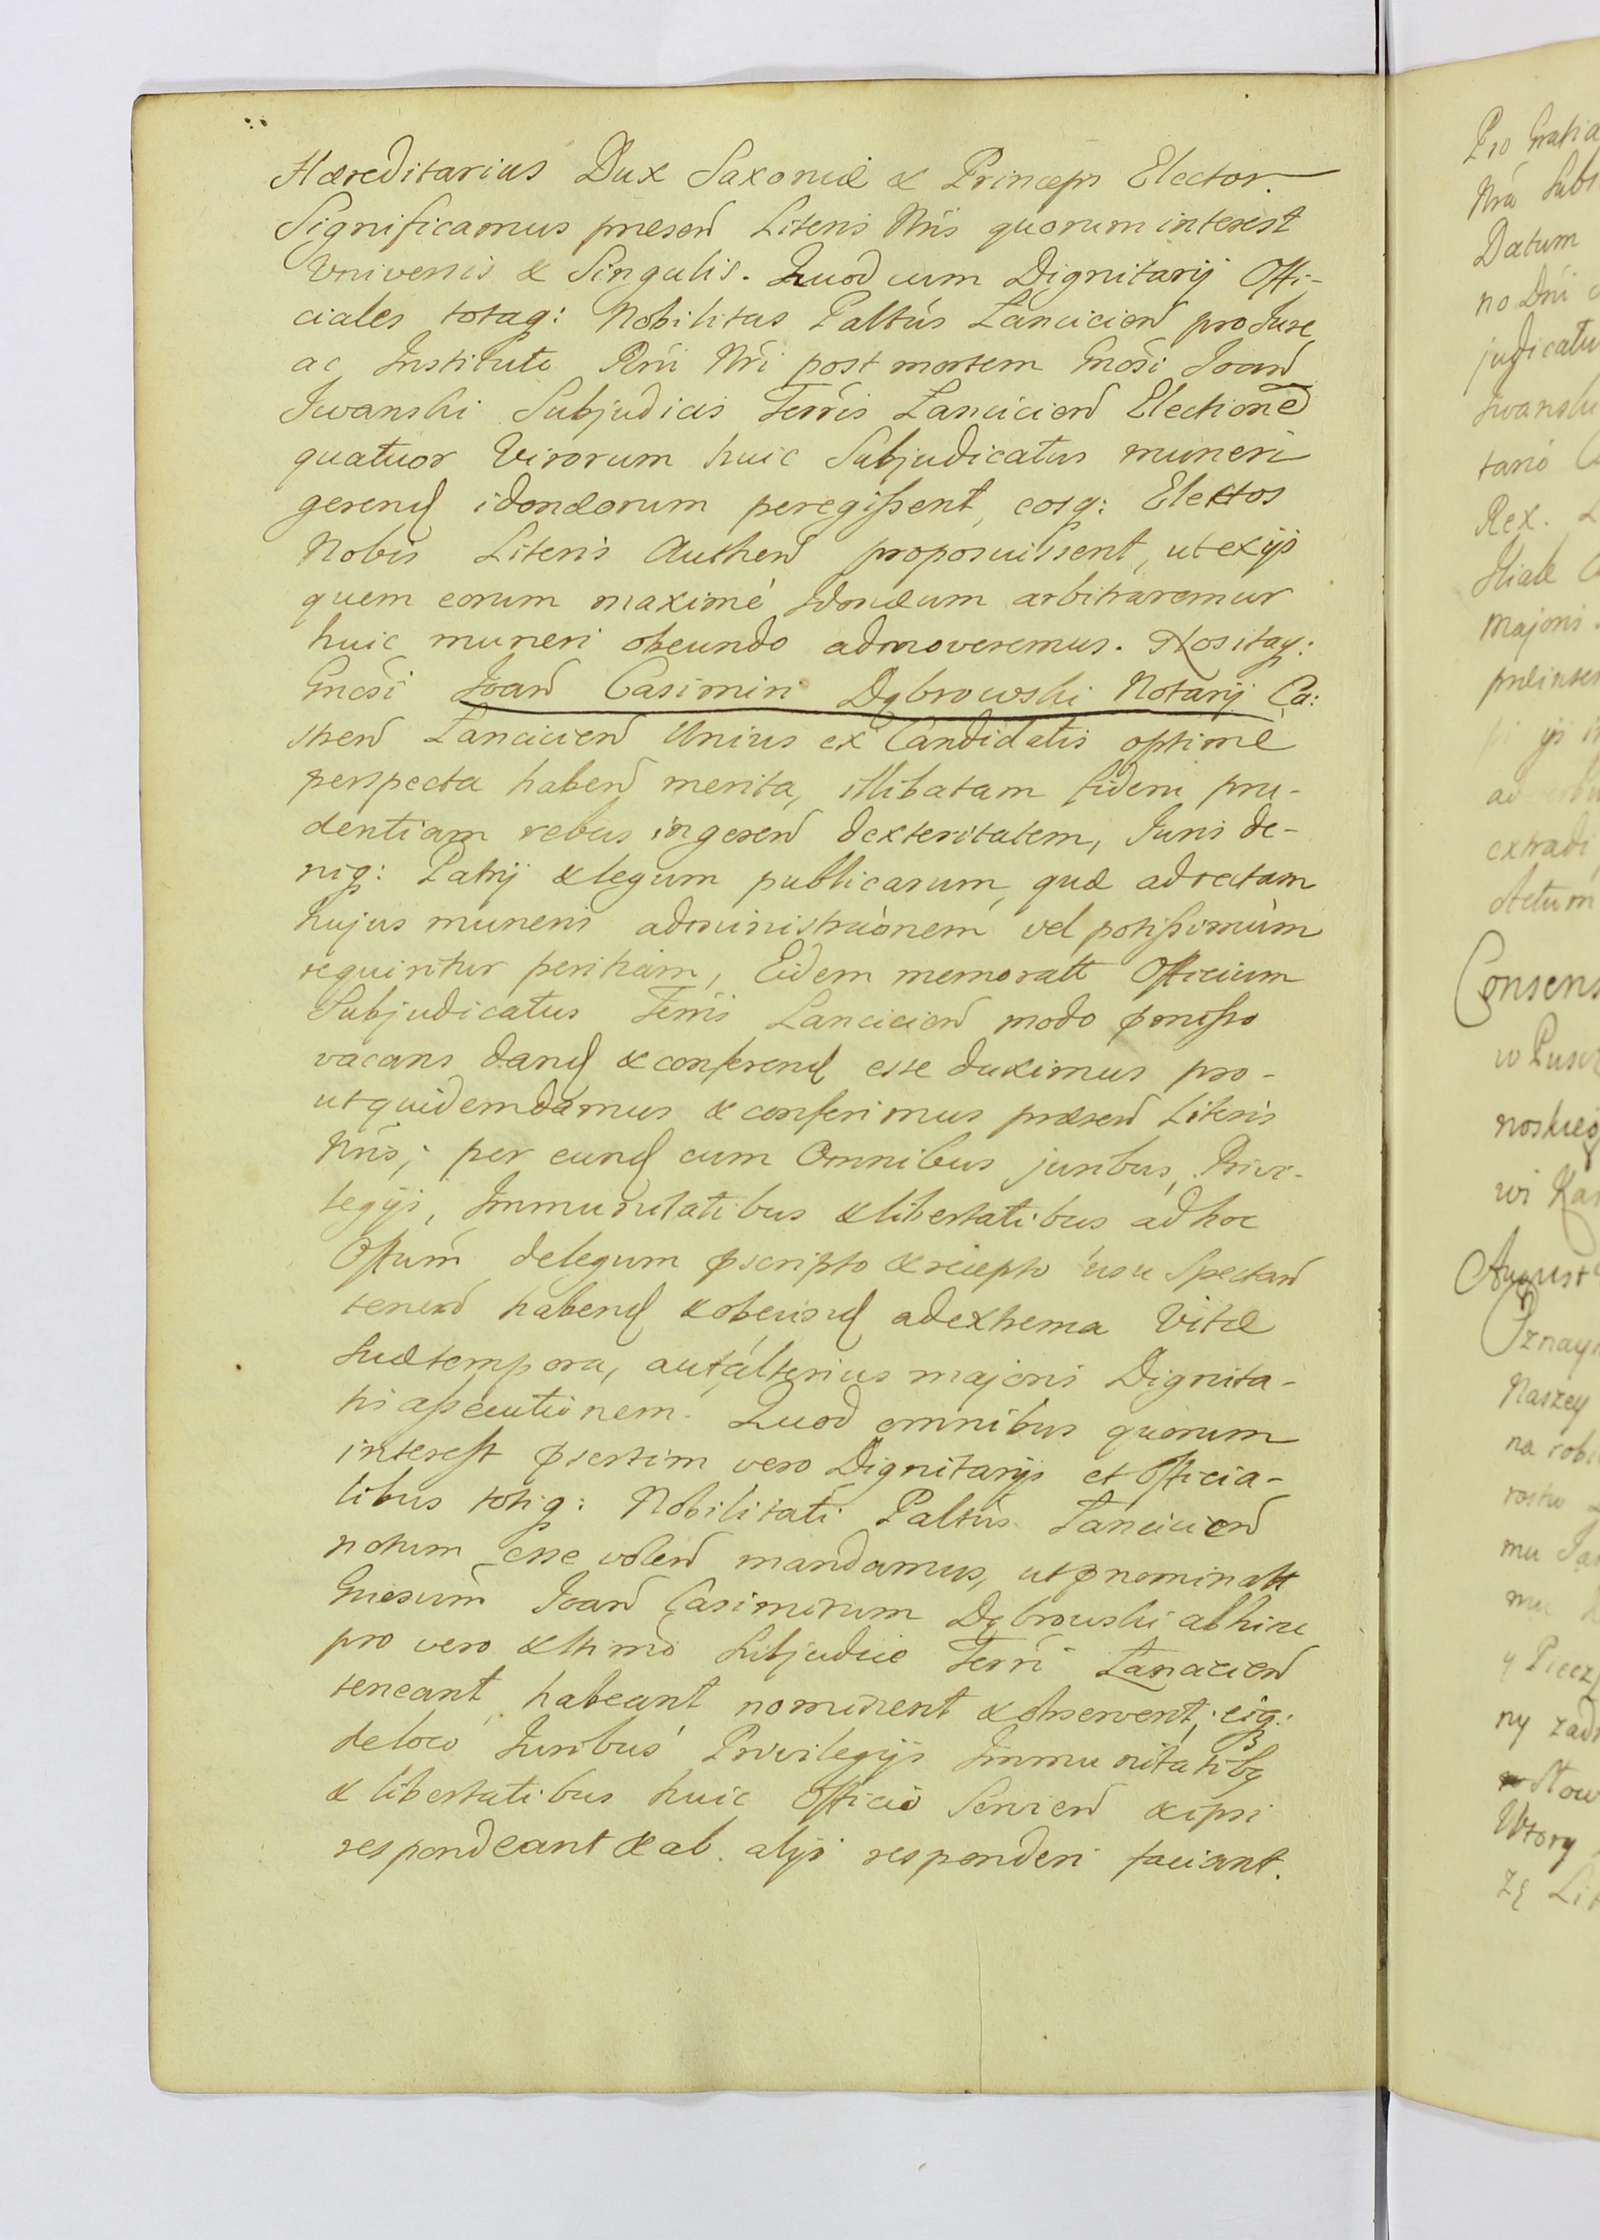 Hæreditarius Dux Saxoniæ & Princeps Elector.
Significamus præsen Literis Nris quorum interest
Universis & Singulis. Quod cum Dignitarij Offi-
ciales totaq: Nobilitas Paltus Lancicien pro Jure
ac Instituto Rni Nri post mortem Gnosi Joan
Iwanski Subjudicis Terris Lancicien Electione
quatuor Virorum huic Subjudicatus muneri
gerend idoneorum peregissent, eosq: Electos
Nobis Literis Authen proposuissent, ut ex ijs
quem eorum maximé Idoneum arbitraremur
huic muneri obeundo admoveremus. Nos itaq:
Gnosi Joan Casimiri Dąbrowski Notarij Ca:
stren Lancicien Unius ex Candidatis optimé
perspecta haben merita, illibatam fidem pru-
dentiam rebus in geren dexteritatem, Juris de-
niq: Patrij & legum publicarum, quæ ad rectam
hujus muneris administraonem vel potissimum
requiritur peritiam, Eidem memoratt Officium
Subjudicatus Terris Lancicien modo pmisso
vacans dand & conferend esse duximus pro-
ut quidem damus & conferimus præsen Literis
Nris; per eund cum Omnibus juribus, Privi-
legijs, Immunitatibus & libertatibus ad hoc
Offum de legum pscripto & recepto usu Spectan
tenen habend & obeund ad extrema Vitæ
suæ tempora, aut alterius majoris Dignita-
tis assecutionem. Quod omnibus quorum
interest psertim vero Dignitarijs et Officia-
libus totiq: Nobilitati Paltus Lancicien
notum esse volen mandamus, ut pnominatt
Gnosum Joan Casimirum Dąbrowski abhinc
pro vero & ltimo Subjudice Terri Lancicien
teneant, habeant nominent & observent, eiq:
de loco Juribus Privilegijs Immunitatibq
& libertatibus huic Officio Servien & ipsi
respondeant & ab alijs responderi faciant.
Pro Gratia
Nra Subs
Datum
no Dni
judicatu
Iwanski
tario
Rex.
Majoris
extradi
Actum
Consens
w Pusz
noskieg
wi Kas
August
Oznaym
Naszey
na robi
rostw
mu Jas
mu
y Piecz
ny zad
Now
Wtory
zę Lit